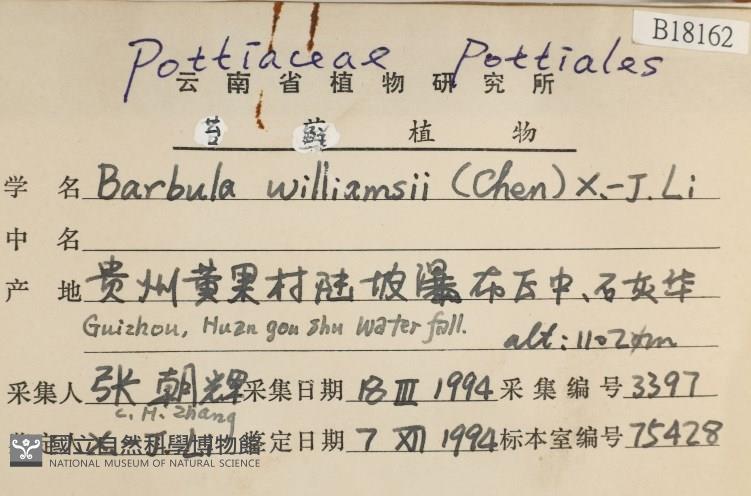 B18162
Pottiaceae Pottiales
云南省植物研究所
苔藓植物
学名 Barbula williamsii (Chen) X.-J. Li
中名
产地 贵州黄果村陡坡瀑布瓦中、石灰华
Guizhou, Huangoushu waterfall.
alt: 1102m
采集人 张朝辉 采集日期 18 III 1994 采集编号 3397
C. H. Zhang
X. J. Li 鉴定日期 7 XII 1994 标本室编号 75428
國立自然科學博物館
NATIONAL MUSEUM OF NATURAL SCIENCE